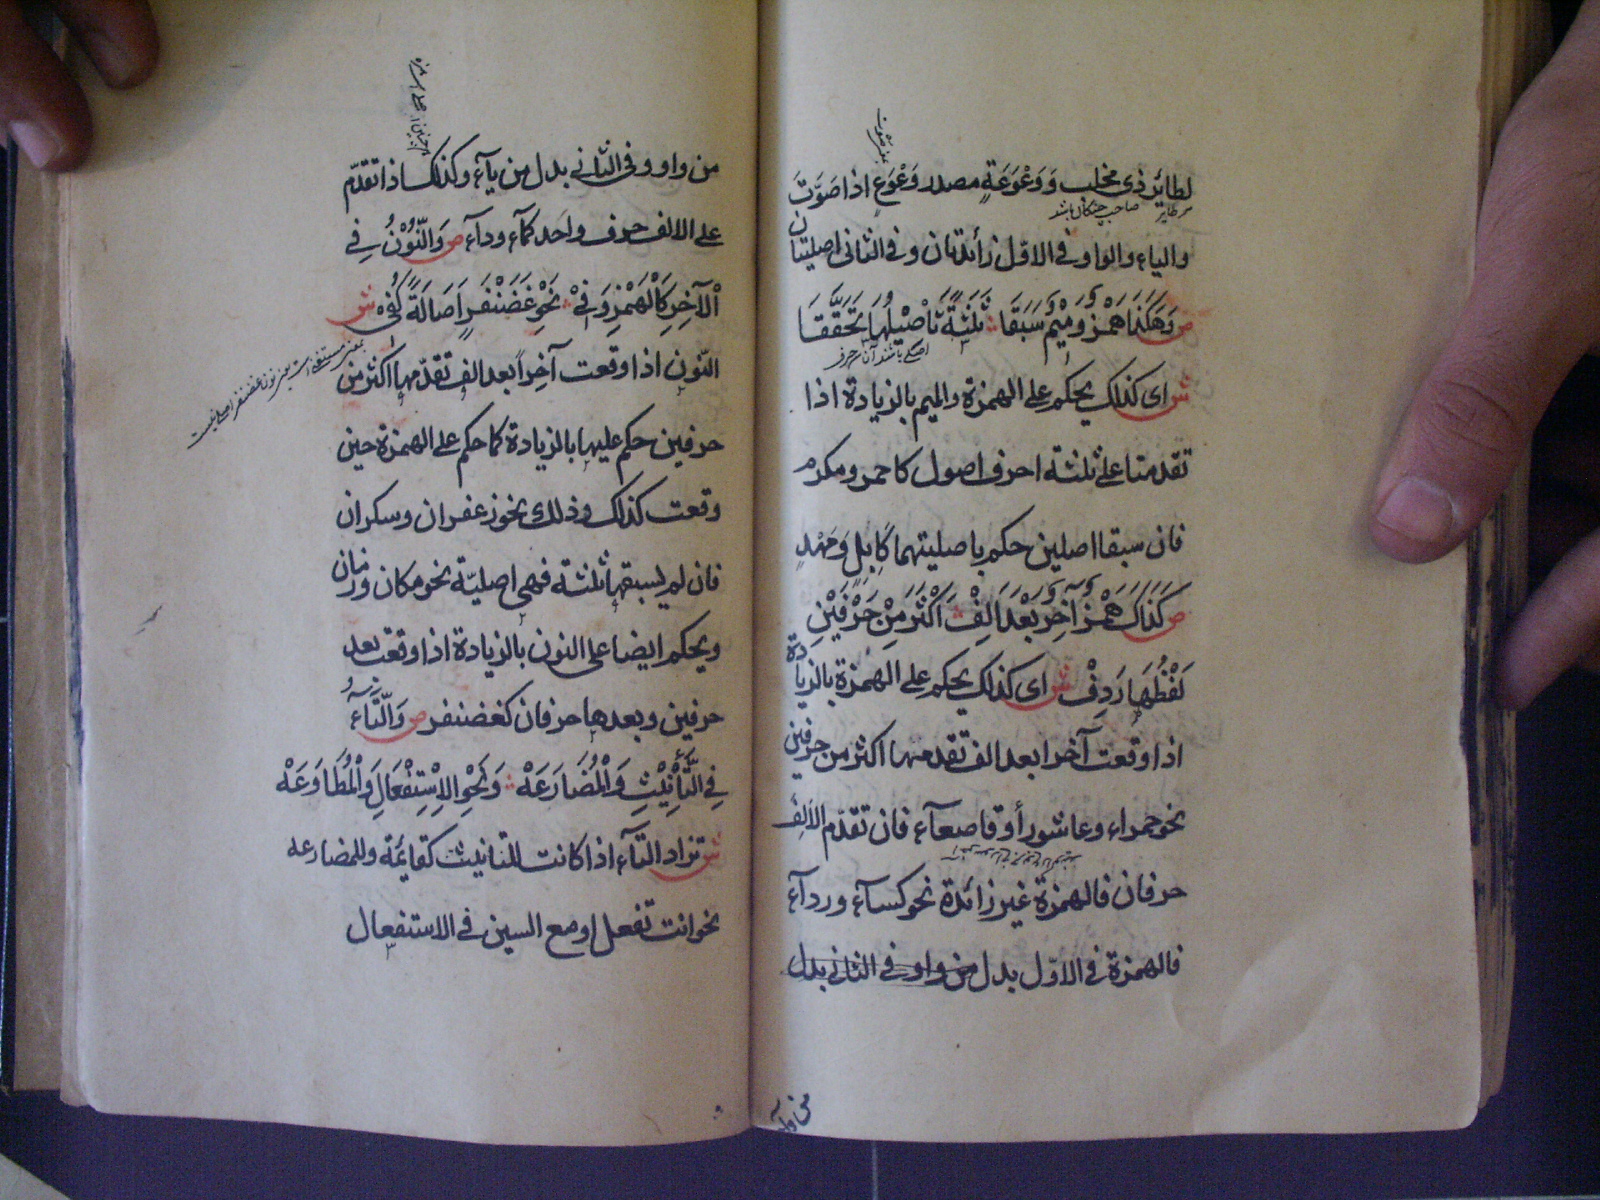 لطائر ذى مخلب وَوَعْوَعَةٍ مصدر وَعْوَعٍ اذا صَوَّتَ
صاحب چنكال باشد
والياء والواو فى الاوّل زائدتان وفى الثانى اصليتان
ص وَهَكَذَا هَمْزٌ وَمِيْمٌ سَبَقَا ثَلَثَةً تَأْصْيْلُهَا تَحَقَّقَا
ش اى كذلك يحكم على الهمزة والميم بالزيادة اذا
تقدمتا على ثلثة احرف اصول كاحمر ومكرم
فان سبقا اصلين حكم باصليتهما كَاِبِلٍ وَمَهْدٍ
ص كَذَاكَ هَمْزٌ آخِرٌ بَعْدَ اَلِفْ اَكْثَرَ مِنْ حَرْفَيْنِ
لَفْظُهَا رَدِفْ ش اى كذلك يحكم على الهمزة بالزيادة
اذا وقعت آخرا بعد الف تقدمها اكثر من حرفين
نحو حمراء وعاشوراء وقاصعآء فان تقدّم الالف
حرفان فالهمزة غير زائدة نحو كسآء وردآء
فالهمزة فى الاوّل بدل من واو وفى الثانى بدل
من واو وفى الثانى بدل من يآء وكذلك اذا تقدّم
على الالف حرف واحد كمآء ودآء ص وَالنُّوْنُ فِى
اْلآخِرِ كَاْلهَمْزِ وَفِىْ نَحْوِ غَضَنْفَرٍ اَصَالَةً كُفِىْ ش
النّون اذا وقعت آخِراً بعد الف تقدّمها اكثر من
حرفين حكم عليها بالزيادة كما حكم على الهمزة حين
وقعت كذلك وذلك نحو زعفران وسكران
فان لم يسبقها ثلثة فهى اصليّة نحو مكان وزمان
ويحكم ايضا على النون بالزيادة اذا وقعت بعد
حرفين وبعدها حرفان كغضنفر ص وَالتَّآءُ
فِى التَّأْنِيْثِ وَاْلمُضَارَعَهْ وَنَحْوِ اْلاِسْتِفْعَالِ وَاْلمُطَاوَعَهْ
ش تزاد التآء اذا كانت للتانيث كقائمة وللمضارعه
نحو انت تفعل او مع السين فى الاستفعال